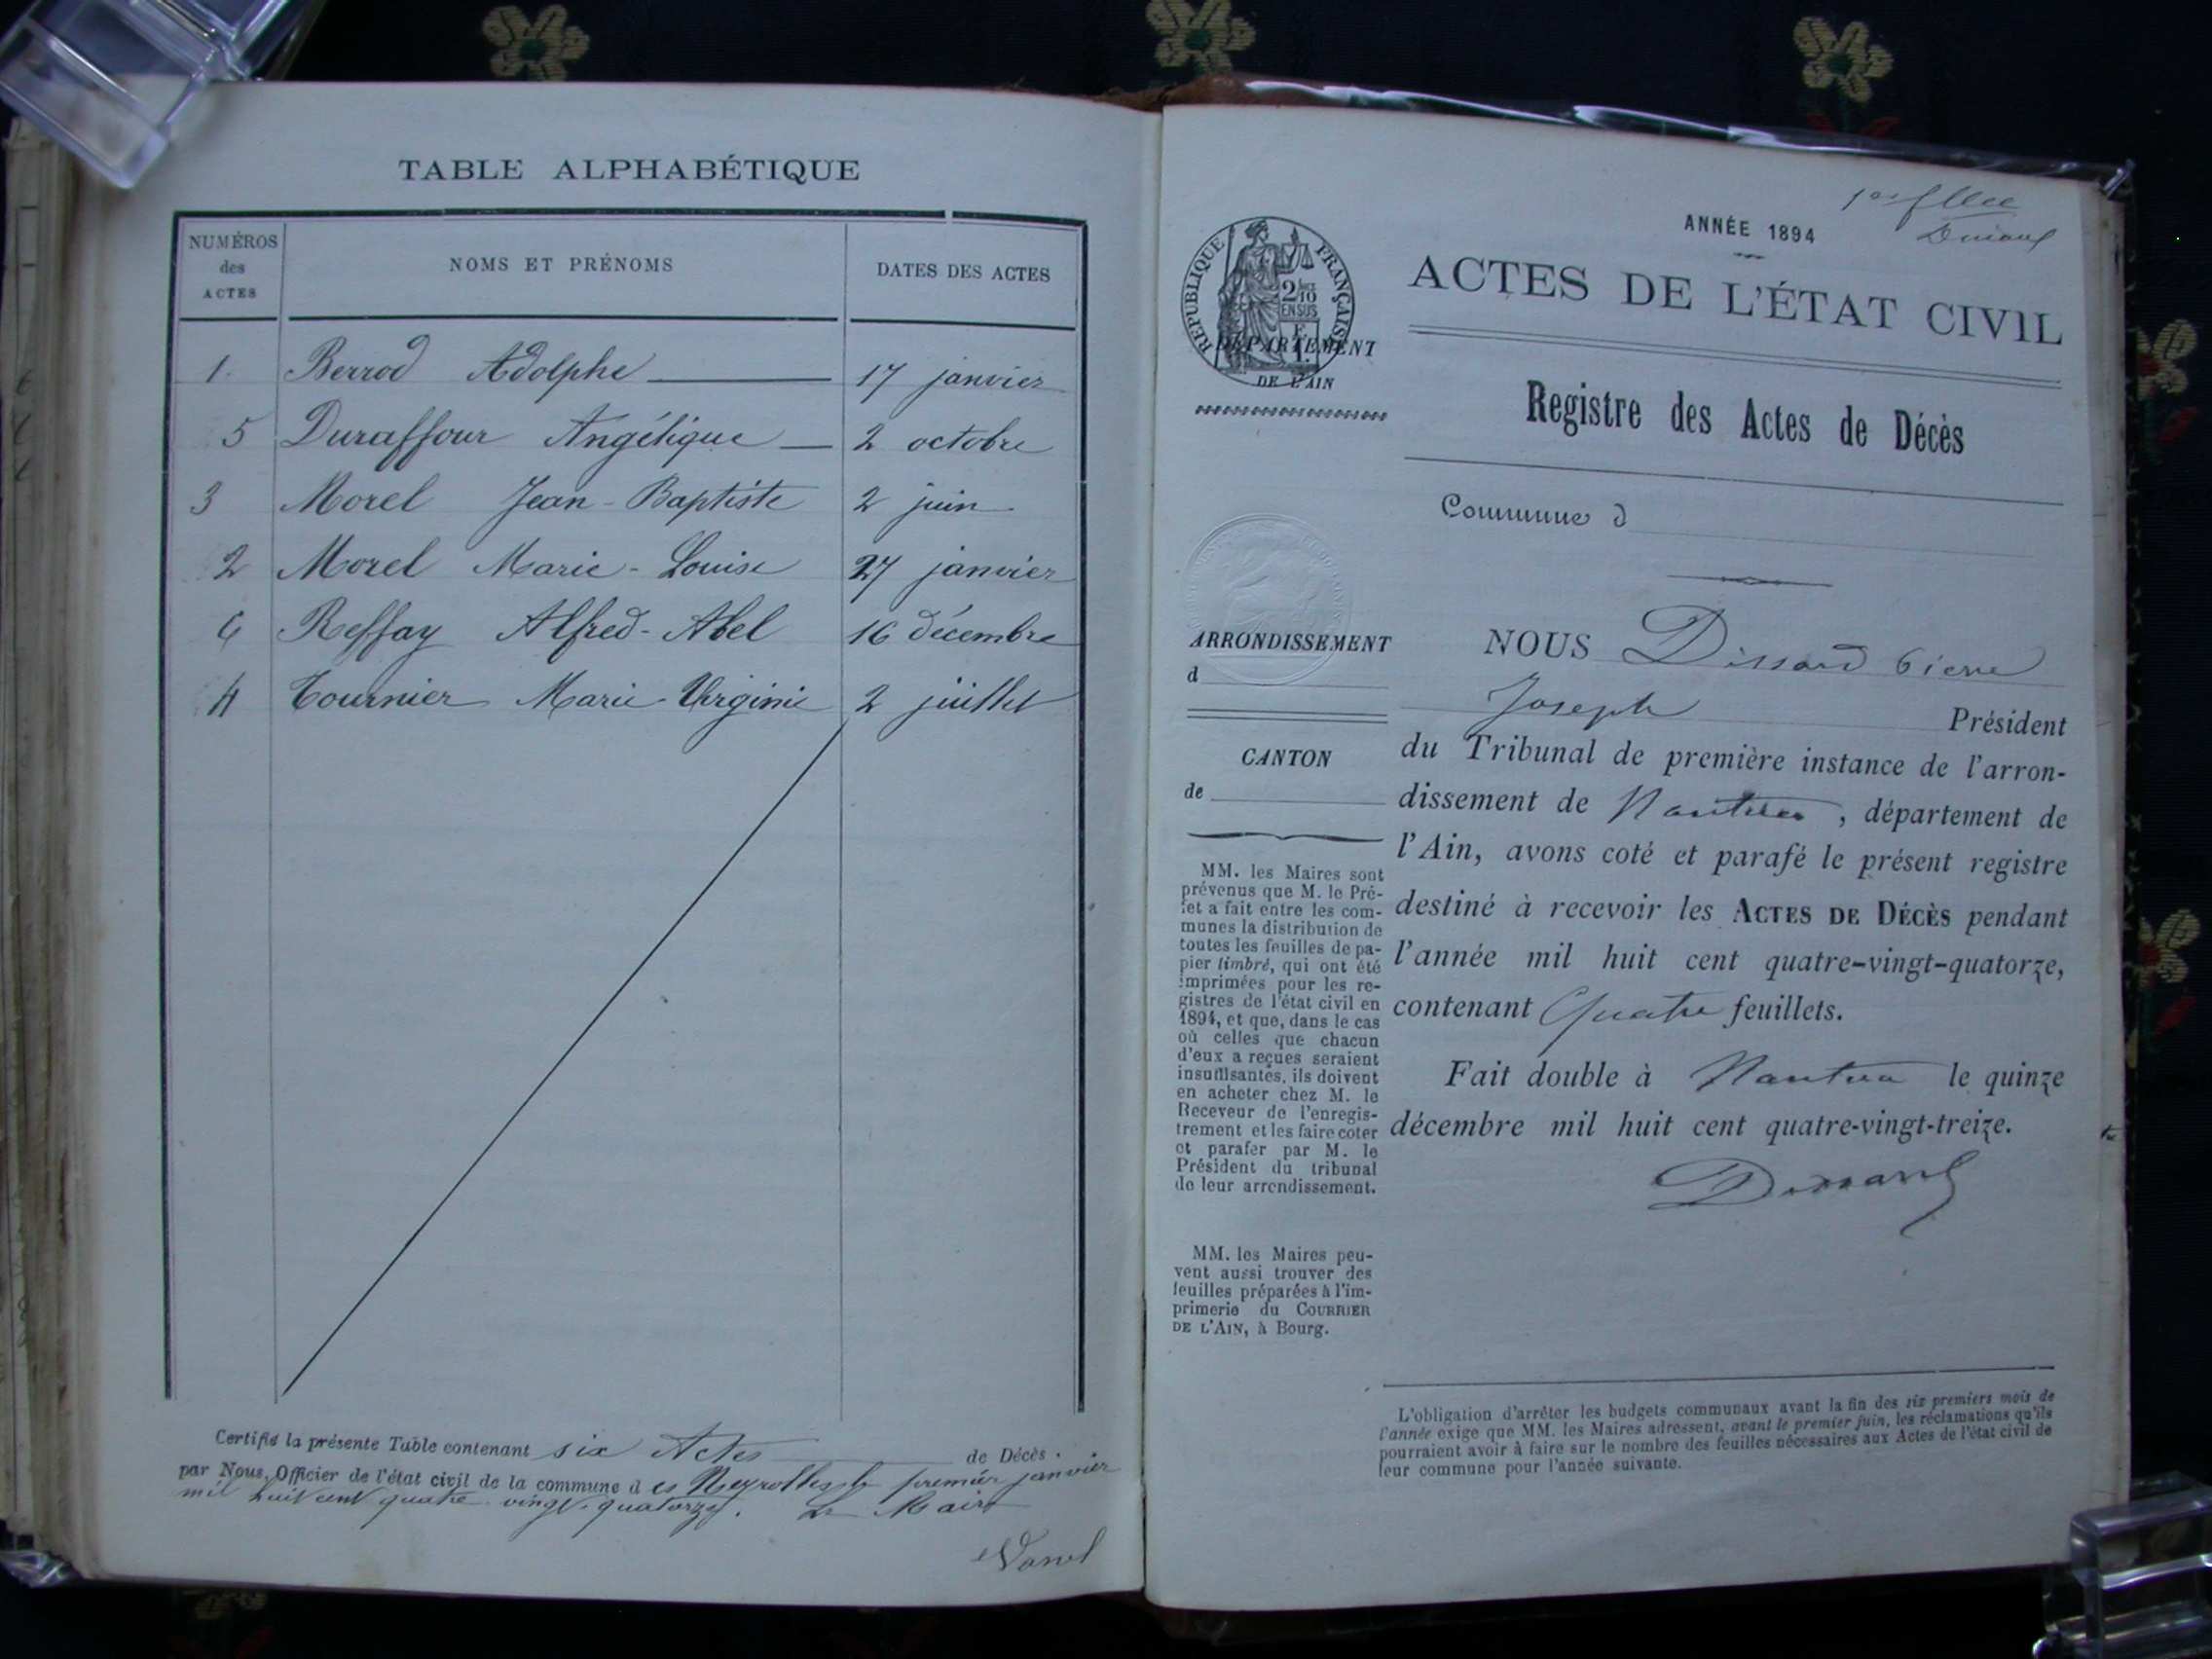 TABLE ALPHABÉTIQUE
NUMÉROS des ACTES NOMS ET PRÉNOMS DATES DES ACTES
1. Berrod Adolphe 17 janvier
5 Duraffour Angélique 2 octobre
3 Morel Jean-Baptiste 2 juin
2 Morel Marie-Louise 27 janvier
6 Reffay Alfred-Abel 16 décembre
4 Tournier Marie-Virginie 2 juillet
Certifié la présente Table contenant six Actes de Décès.
par Nous, Officier de l'état civil de la commune d es Neyrolles le premier janvier
mil huit cent quatre-vingt-quatorze. Le Maire
ANNÉE 1894
RÉPUBLIQUE FRANÇAISE
2/10 EN SUS
DÉPARTEMENT
DE L'AIN
ACTES DE L'ÉTAT CIVIL
Registre des Actes de Décès
Commune d
ARRONDISSEMENT
d
CANTON
de
MM. les Maires sont
prévenus que M. le Pré-
fet a fait entre les com-
munes la distribution de
toutes les feuilles de pa-
pier timbré, qui ont été
imprimées pour les re-
gistres de l'état civil en
1894, et que, dans le cas
où celles que chacun
d'eux a reçues seraient
insuffisantes, ils doivent
en acheter chez M. le
Receveur de l'enregis-
trement et les faire coter
et parafer par M. le
Président du tribunal
de leur arrondissement.
MM. les Maires peu-
vent aussi trouver des
feuilles préparées à l'im-
primerie du COURRIER
DE L'AIN, à Bourg.
NOUS Dissard Pierre
Joseph Président
du Tribunal de première instance de l'arron-
dissement de Nantua, département de
l'Ain, avons coté et parafé le présent registre
destiné à recevoir les ACTES DE DÉCÈS pendant
l'année mil huit cent quatre-vingt-quatorze,
contenant Quatre feuillets.
Fait double à Nantua le quinze
décembre mil huit cent quatre-vingt-treize.
Dissard
L'obligation d'arrêter les budgets communaux avant la fin des six premiers mois de
l'année exige que MM. les Maires adressent, avant le premier juin, les réclamations qu'ils
pourraient avoir à faire sur le nombre des feuilles nécessaires aux Actes de l'état civil de
leur commune pour l'année suivante.